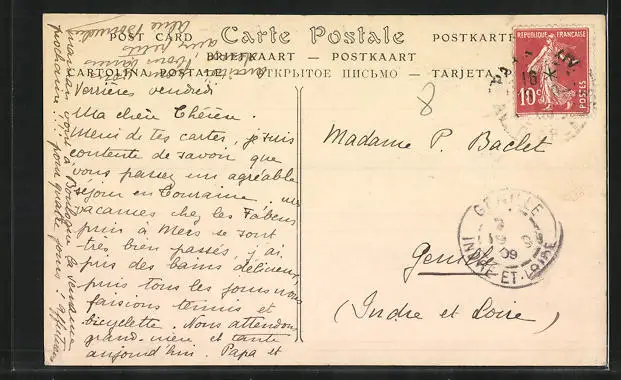 POST CARD Carte Postale POSTKARTE
BRIEFKAART — POSTKAART
CARTOLINA POSTALE ОТКРЫТОЕ ПИСЬМО — TARJETA
REPUBLIQUE FRANÇAISE
10c
POSTES
16
8
Verrières vendredi
Ma chère Thérèse.
Merci de tes cartes, je suis
contente de savoir que
vous passez un agréable
séjour en Touraine, mes
vacances chez les
puis à Mers se sont
très bien passés, j'ai
pris des bains délicieux,
puis tous les jours nous
faisions tennis et
bicyclette. Nous attendons
grand-mère et tante
aujourd'hui. Papa et
maman vont à Boulogne la semaine
prochaine pour quatre jours
Madame P. Baclet
Genillé
(Indre et Loire)
GENILLE
09
INDRE-ET-LOIRE